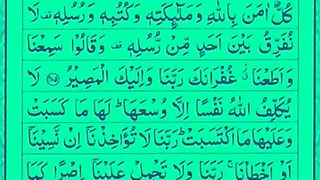 كُلٌّ اٰمَنَ بِاللّٰهِ وَمَلٰٓئِكَتِهٖ وَكُتُبِهٖ وَرُسُلِهٖ قف لَا
نُفَرِّقُ بَيْنَ اَحَدٍ مِّنْ رُّسُلِهٖ قف وَقَالُوْا سَمِعْنَا
وَاَطَعْنَا غُفْرَانَكَ رَبَّنَا وَاِلَيْكَ الْمَصِيْرُ ﴿٢٨٥﴾ لَا
يُكَلِّفُ اللّٰهُ نَفْسًا اِلَّا وُسْعَهَا ؕ لَهَا مَا كَسَبَتْ
وَعَلَيْهَا مَا اكْتَسَبَتْ ؕ رَبَّنَا لَا تُؤَاخِذْنَاۤ اِنْ نَّسِيْنَاۤ
اَوْ اَخْطَاْنَا ۚ رَبَّنَا وَلَا تَحْمِلْ عَلَيْنَاۤ اِصْرًا كَمَا